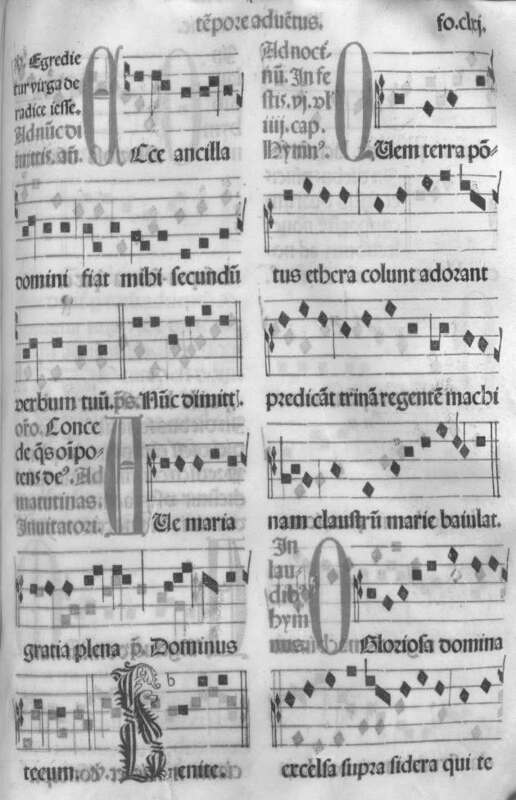 tẽpore aduẽtus. fo.clxj.
℣. Egredie
tur virga de
radice iesse.
Ad nũc di
mittis. añ.
ECce ancilla
domini fiat mihi secundũ
verbum tuũ. p̃s. Nũc dimitt.
oro. Conce
de q̃s oĩpo-
tens de⁹. Ad
matutinas.
Inuitatori.
AVe maria
gratia plena p̃. Dominus
tecum. Venite.
Ad noct-
nũ. In fe
stis. vj. vl'
iiij. cap.
Hymn⁹.
QUem terra põ-
tus ethera colunt adorant
predicãt trinã regentẽ machi
nam claustrũ marie baiulat.
In
lau-
dib⁹
hym
nus.
OGloriosa domina
excelsa supra sidera qui te